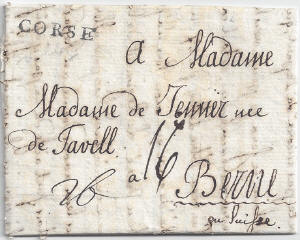 CORSE
A Madame
Madame de Jenner nee
de Tavell.
16
a Berne
en Suisse.